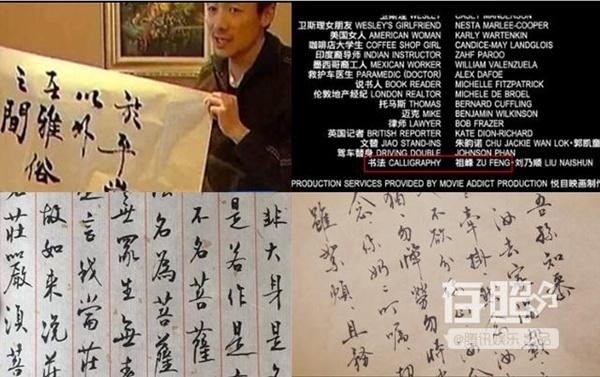 於平
以外
在雅俗
之間
卫斯理 WESLEY CASEY MANDERSON
卫斯理女朋友 WESLEY'S GIRLFRIEND NESTA MARLEE-COOPER
美国女人 AMERICAN WOMAN KARLY WARTENKIN
咖啡店大学生 COFFEE SHOP GIRL CANDICE-MAY LANGLOIS
印度裔导师 INDIAN INSTRUCTOR ZAHF PAROO
墨西哥裔工人 MEXICAN WORKER WILLIAM VALENZUELA
救护车医生 PARAMEDIC (DOCTOR) ALEX DAFOE
说书人 BOOK READER MICHELLE FITZPATRICK
伦敦地产经纪 LONDON REALTOR MICHELE DE BROEL
托马斯 THOMAS BERNARD CUFFLING
迈克 MIKE BENJAMIN WILKINSON
律师 LAWYER BOB FRAZER
英国记者 BRITISH REPORTER KATE DION-RICHARD
文替 JIAO STAND-INS 朱韵诺 CHU JACKIE WAN LOK·郭凯童
驾车替身 DRIVING DOUBLE JOHNSON PHAN
书法 CALLIGRAPHY 祖峰 ZU FENG·刘乃顺 LIU NAISHUN
PRODUCTION SERVICES PROVIDED BY MOVIE ADDICT PRODUCTION 悦目映画制作
非大身是
是若作是
不名菩薩
名為菩薩
無眾生無壽
言我當莊
故如來說莊
名莊嚴須菩
吾孫知悉
汝去家
牽掛
不欲
勿憚勞勿時
念你奶二叮囑切
雖繁頻且
存照
@腾讯娱乐 出品